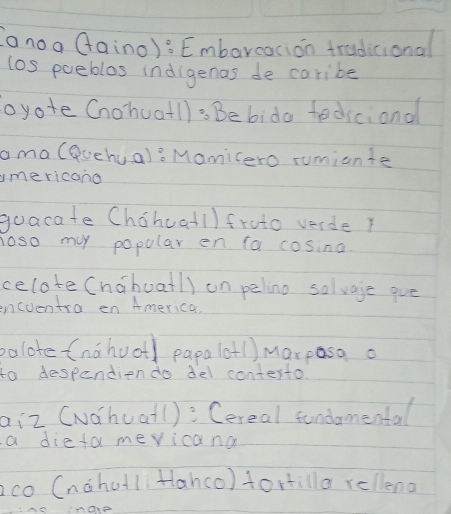 Canoa (taino): Embarcación tradicional
los pueblos indigenas de caribe
oyote (nahuatl): Bebida tedicional
ama (Quehua): Mamicero rumiante
americano
guacate (náhuatl) fruto verde y
noso muy popular en la cosina
celote (náhuatl) un pelino salvaje que
encuentra en America.
palote (náhuatl papalotl) Marposa o
ta despendiendo del contesto
aiz (Náhuatl): Cereal fundamental
a dieta mexicana
aco (náhutl: tlahco) tortilla rellena